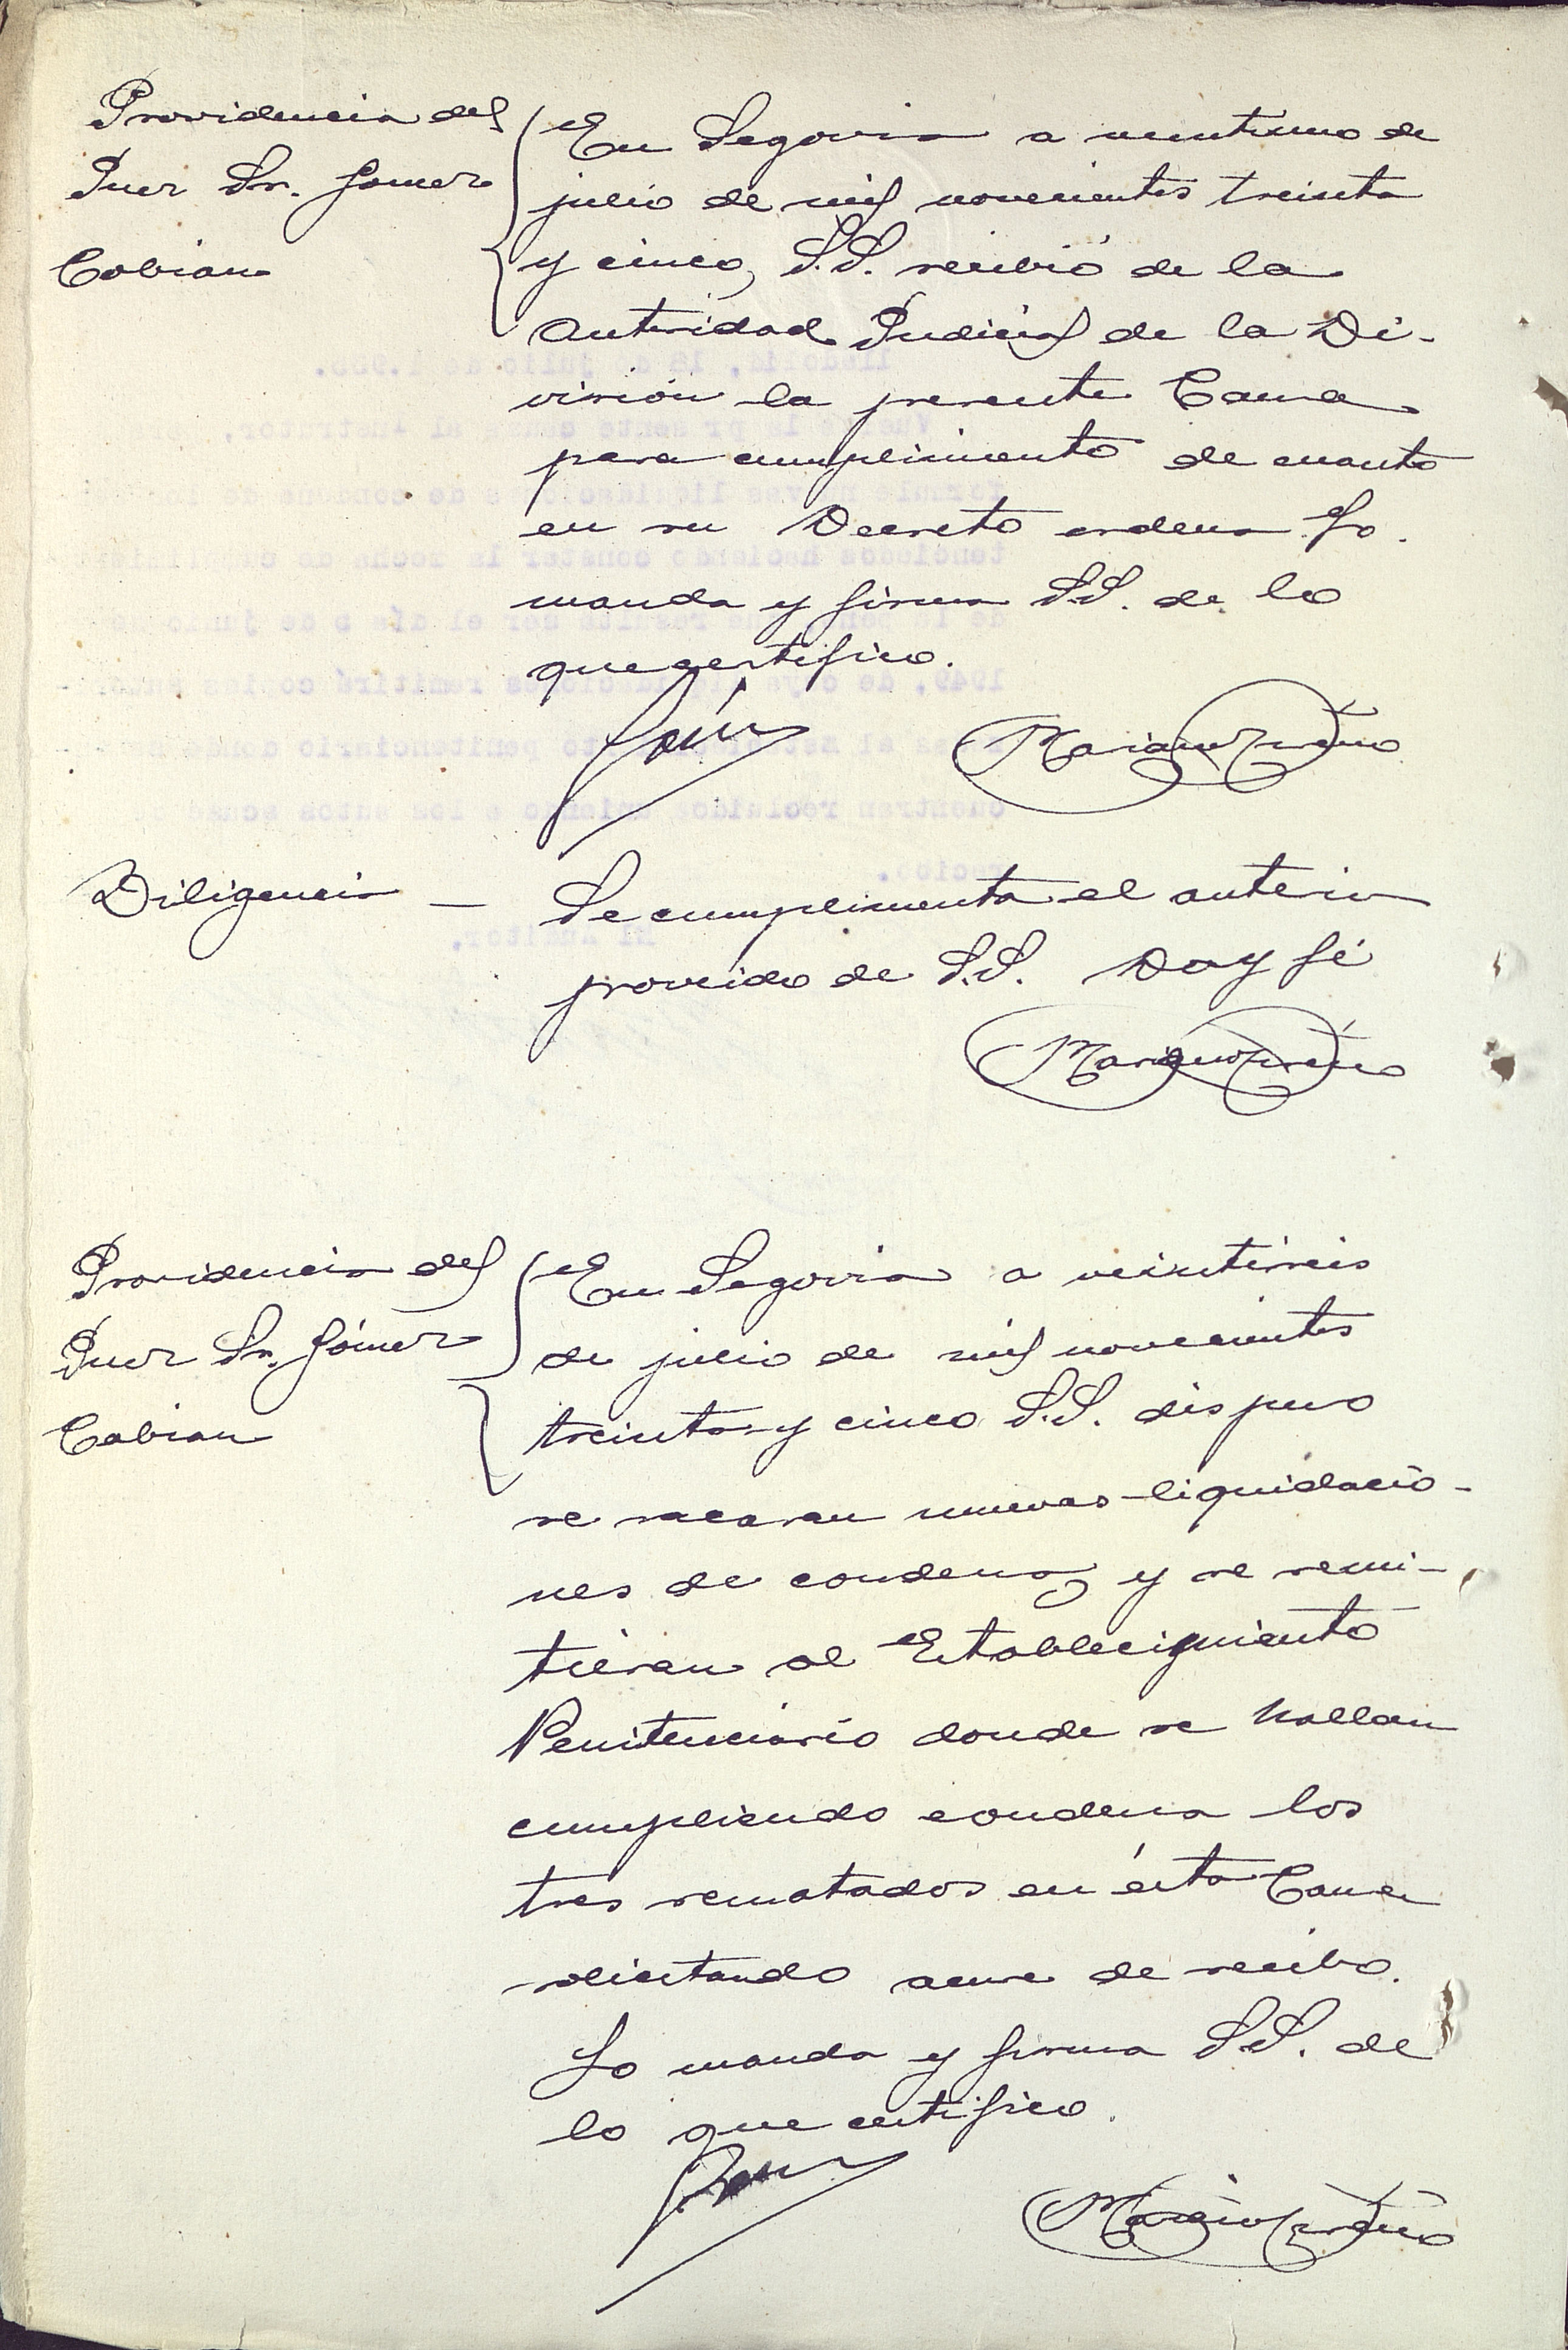 Providencia del
Juez Sr. Gomez
Cobian
En Segovia a veintiuno de
julio de mil novecientos treinta
y cinco, S.S. recibió de la
Autoridad Judicial de la Di-
visión la presente Causa
para cumplimiento de cuanto
en su Decreto ordena. Lo
manda y firma S.S. de lo
que certifico.
Gómez
Mariano
Diligencia —
Se cumplimenta el anterior
proveido de S.S. Doy fé
Mariano
Providencia del
Juez Sr. Gómez
Cobian
En Segovia a veintiseis
de julio de mil novecientos
treinta y cinco S.S. dispuso
se sacaran nuevas liquidacio-
nes de condena y se remi-
tieran al Establecimiento
Penitenciario donde se hallan
cumpliendo condena los
tres rematados en ésta Causa
solicitando acuse de recibo.
Lo manda y firma S.S. de
lo que certifico.
Gómez
Mariano